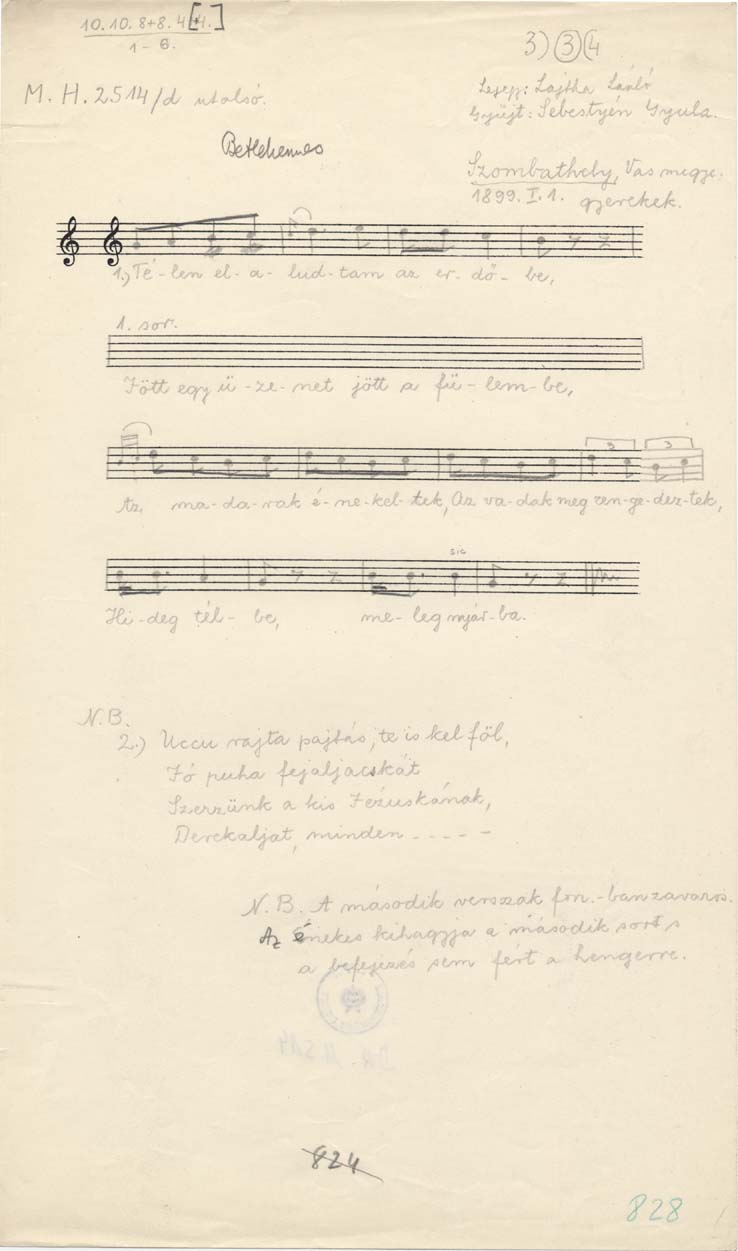 10. 10. 8+8. 4[+4.]
1 – 6.
3) (3) (4
M. H. 2514/d utolsó.
Lejegy: Lajtha László
Gyűjt: Sebestyén Gyula.
Betlehemes
Szombathely, Vas megye.
1899. I. 1. gyerekek.
1.) Té-len el-a-lud-tam az er-dő-be,
1. sor.
Jött egy ü-ze-net jött a fü-lem-be,
3 3
Az ma-da-rak é-ne-kel-tek, Az va-dak meg ren-ge-dez-tek,
sic
Hi-deg tél-be, me-leg nyár-ba.
N.B.
2.) Uccu rajta pajtás, te is kel föl,
Jó puha fejaljacskát
Szerzünk a kis Jézuskának,
Derekaljat, minden - - - - -
N.B. A második versszak fon.-ban zavaros.
Az énekes kihagyja a második sort s
a befejezés sem fért a hengerre.
824
828